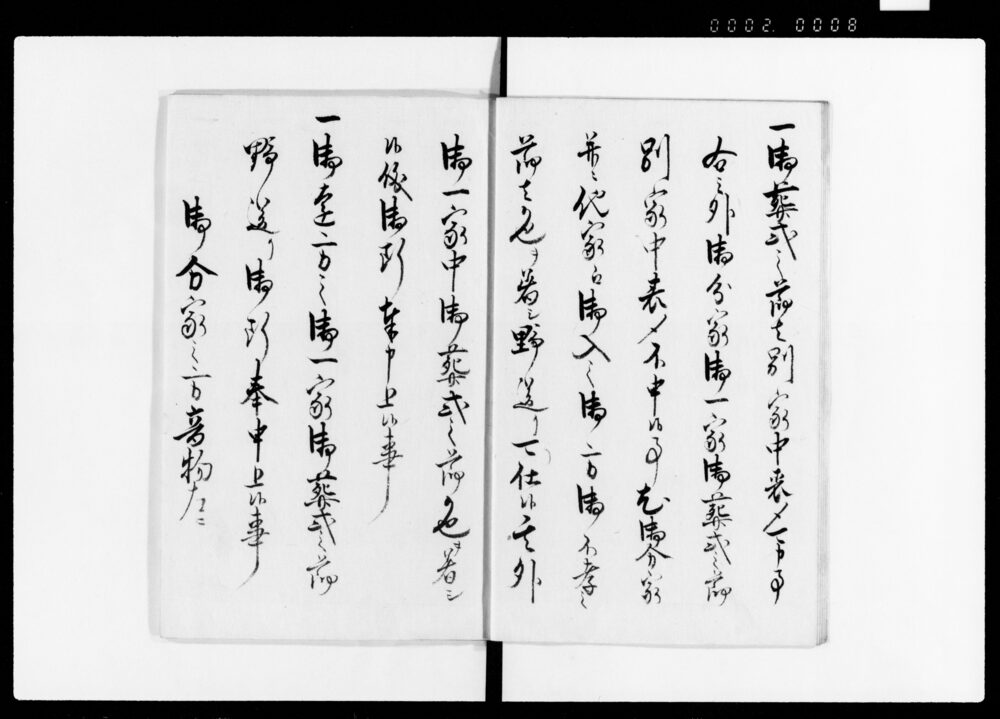 0002. 0008
一御葬式之節者別家中表〆可申事
右之外御分家御一家御葬式之節
別家中表〆不申候事尤御分家
并ニ他家ゟ御入之御方御不幸之
節者色ヲ着シ野送り可仕候其外
御一家中御葬式之節色ヲ着シ
候儀御断奉申上候事
一御遠方之御一家御葬式之節
野送り御断奉申上候事
御分家之方音物左ニ